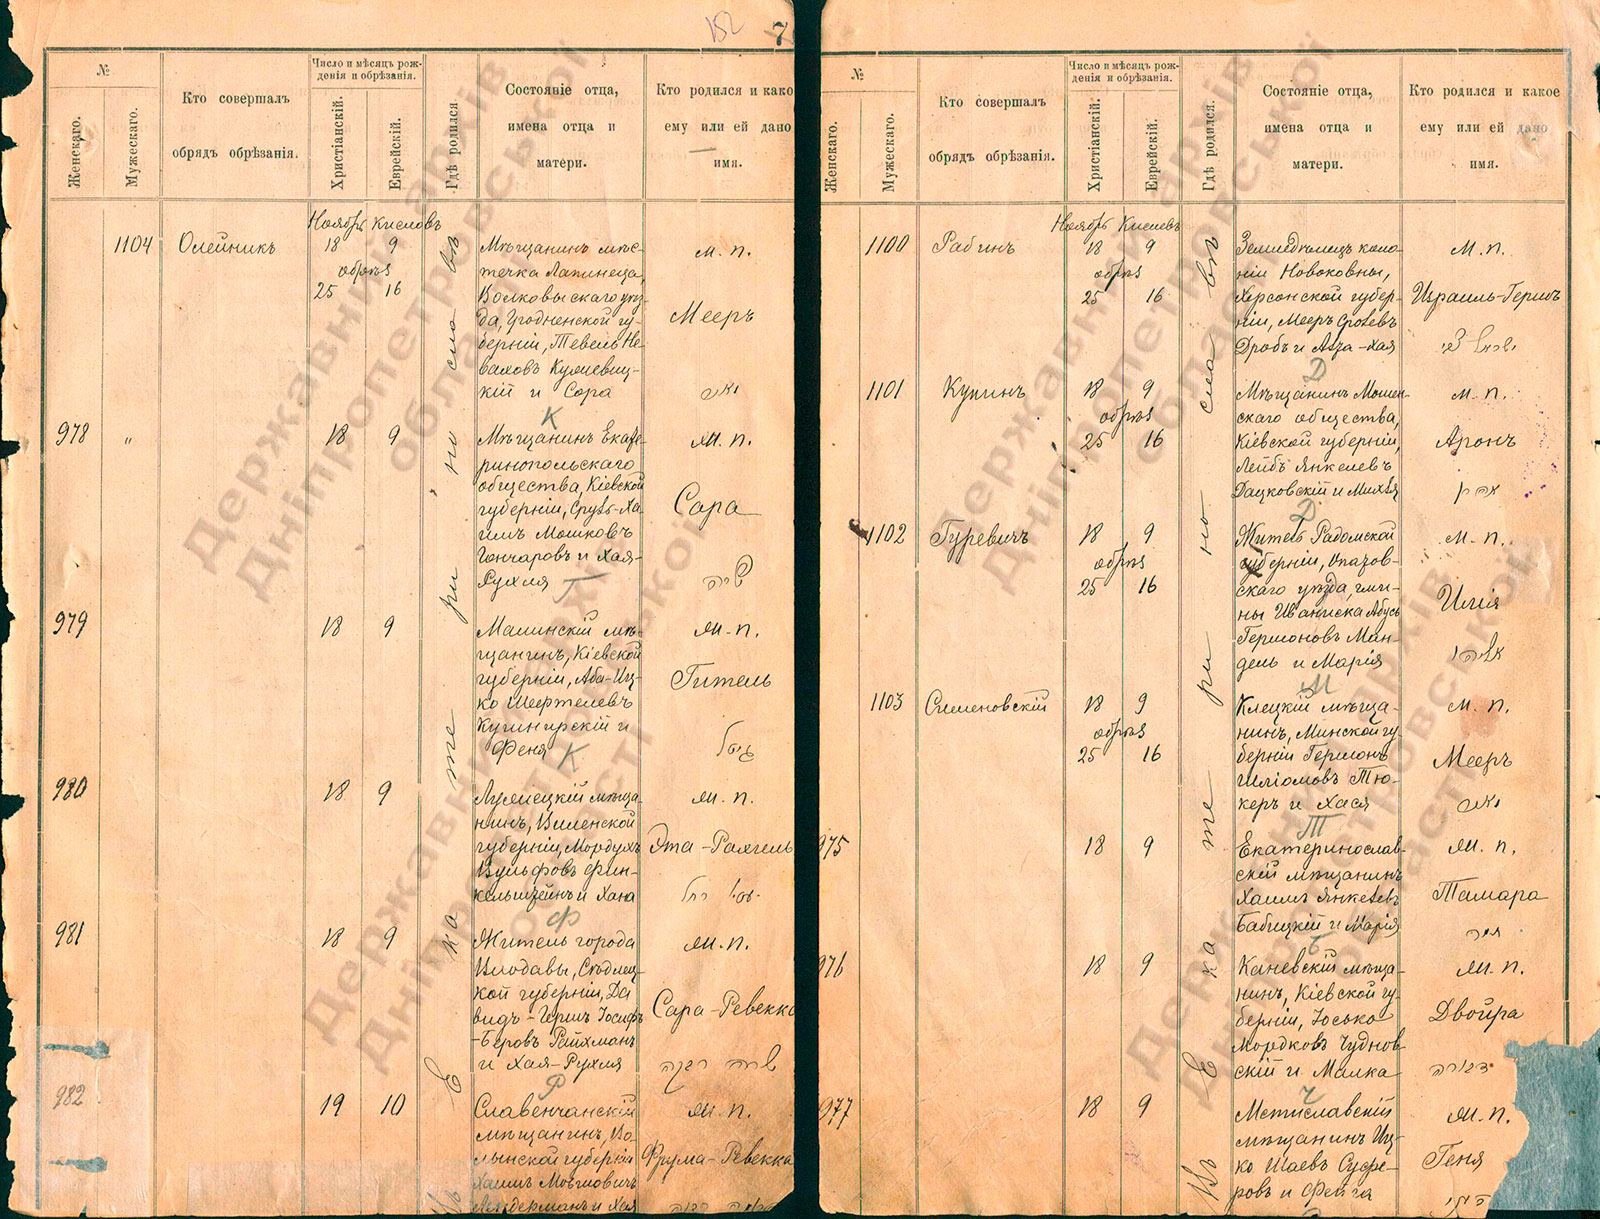 152
7
№
Женскаго.
Мужескаго.
Кто совершалъ
обрядъ обрѣзанія.
Число и мѣсяцъ рож-
денія и обрѣзанія.
Христіанскій.
Еврейскій.
Гдѣ родился
Состояніе отца,
имена отца и
матери.
Кто родился и како
ему или ей дано
имя.
Ноябрь Кислевъ
въ Екатеринославѣ
1104 Олейникъ 18 9
обрѣз
25 16
Мѣщанинъ мѣс-
течка Лапинеца,
Волковыскаго уѣз-
да, Гродненской гу-
берніи, Тевель
кій и Сора
К
м. п.
Мееръ
מאיר
978 „ 18 9
Мѣщанинъ Екате-
ринопольскаго
общества, Кіевской
губерніи, Сруль-Ха-
имъ Мошковъ
Гончаровъ и Хая-
Рухля
Г
ж. п.
Сара
שרה
979 18 9
Малинскій мѣ-
щанинъ, Кіевской
губерніи, Аба-Иц-
ко Шефтелевъ
Кугинирскій и
Феня
К
ж. п.
Гитель
גיטל
980 18 9
мѣща-
нинъ, Виленской
губерніи, Мордухъ
Вульфовъ Фин-
кельштейнъ и Хана
Ф
ж. п.
Эта-Рахгель
981 18 9
Житель города
Влодавы, Сѣдлец-
кой губерніи, Да
видъ-Гершъ Іосифъ
-Беровъ Райхманъ
и Хая-Рухля
Р
ж. п.
Сара-Ревекка
שרה רבקה
982 19 10
Славенчанскій
мѣщанинъ, Во-
лынской губерніи
Хаимъ Мовшовичъ
и Хая
ж. п.
Фрума-Ревекка
פרומה רבקה
№
Женскаго.
Мужескаго.
Кто совершалъ
обрядъ обрѣзанія.
Число и мѣсяцъ рож-
денія и обрѣзанія.
Христіанскій.
Еврейскій.
Гдѣ родился.
Состояніе отца,
имена отца и
матери.
Кто родился и какое
ему или ей дано
имя.
Ноябрь Кислевъ
Въ Екатеринославѣ
1100 Рабинъ 18 9
обрѣз
25 16
Земледѣлецъ коло-
ніи Новоковны,
Херсонской губер-
ніи, Мееръ Сролевъ
Дробъ и Хая
Д
м. п.
Израиль-Гершъ
ישראל צבי
1101 Купинъ 18 9
обрѣз
25 16
Мѣщанинъ Мошен-
скаго общества,
Кіевской губерніи,
Лейбъ Янкелевъ
Дацковскій и Михля
Д
м. п.
Аронъ
אהרן
1102 Гуревичъ 18 9
обрѣз
25 16
Житель Радомской
губерніи, Опатов-
скаго уѣзда, гми-
ны Иваниска Абусь
Гершоновъ Ман-
дель и Марія
М
м. п.
Илія
אליהו
1103 Сименовскій 18 9
обрѣз
25 16
Клецкій мѣща-
нинъ, Минской гу-
берніи Гершонъ
Шліомовъ Тю-
керъ и Хася
Т
м. п.
Мееръ
מאיר
975 18 9
Екатеринослав-
скій мѣщанинъ
Хаимъ Янкелевъ
Бабицкій и Марія
Б
ж. п.
Тамара
976 18 9
Каневскій мѣща-
нинъ, Кіевской гу-
берніи, Іосько
Мордковъ Чуднов-
скій и Малка
Ч
ж. п.
Двойра
דבורה
977 18 9
Мстиславскій
мѣщанинъ Иц-
ко Шаевъ Сусре-
ровъ и Фейга
ж. п.
Геня
Державний архів
Дніпропетровської
області